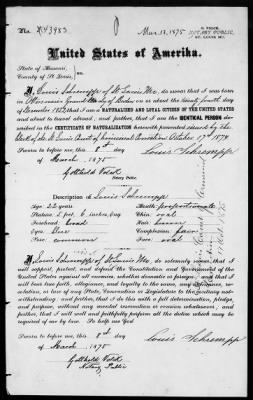 No. 43983
Mar. 13, 1875
NOTARY PUBLIC,
ST. LOUIS, MO.
United States of America.
State of Missouri,
County of St. Louis, } ss.
I, Louis Schrempp of St Louis Mo, do swear that I was born
in Grand Duchy of Baden on or about the twenty fourth day
of December 1852; that I am a NATURALIZED AND LOYAL CITIZEN OF THE UNITED STATES
and about to travel abroad; and further, that I am the IDENTICAL PERSON
described in the CERTIFICATE OF NATURALIZATION herewith presented issued by the
Clerk of the St. Louis Court of Criminal Correction October 17th 1874
Sworn to before me, this 8th day
of March 1875
Louis Schrempp
Gotthold Voldt
Notary Public.
Description of Louis Schrempp
Age: 22 years
Stature: 5 feet 6 inches, Eng.
Forehead: broad
Eyes: Blue
Nose: common
Mouth: proportionate
Chin: oval
Hair: brown
Complexion: fair
Face: oval
I, Louis Schrempp of St Louis Mo, do solemnly swear that I
will support, protect, and defend the Constitution and Government of the
United States against all enemies, whether domestic or foreign; and that I
will bear true faith, allegiance, and loyalty to the same, any ordinance, resolution,
or law of any State, Convention or Legislature to the contrary notwithstanding;
and further, that I do this with a full determination, pledge,
and purpose, without any mental reservation or evasion whatsoever; and
further, that I will well and faithfully perform all the duties which may be
required of me by law. So help me God
Sworn to before me, this 8th day
of March 1875
Louis Schrempp
Gotthold Voldt
Notary Public